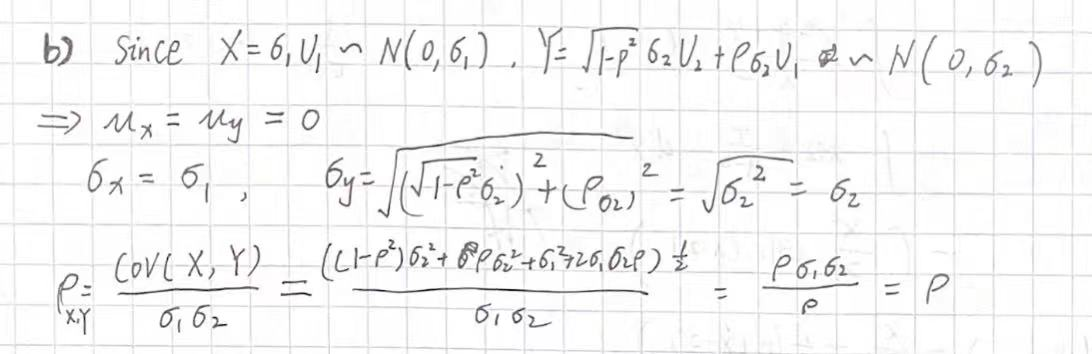 b) Since X = σ₁U₁ ~ N(0, σ₁), Y = √(1-ρ²) σ₂U₂ + ρσ₂U₁ ~ N(0, σ₂)
⇒ μx = μy = 0
σx = σ₁, σy = √((√(1-ρ²)σ₂)² + (ρσ₂)²) = √(σ₂²) = σ₂
ρ_X,Y = COV(X, Y) / σ₁σ₂ = ((1-ρ²)σ₂² + ρσ₂² + σ₁² + 2σ₁σ₂ρ)^½ / σ₁σ₂ = ρσ₁σ₂ / ρ = ρ